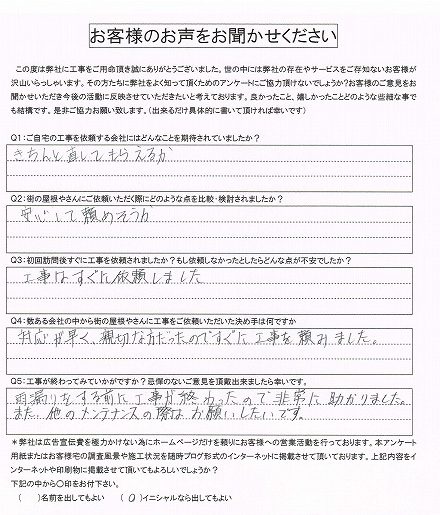 お客様のお声をお聞かせください
この度は弊社に工事をご用命頂き誠にありがとうございました。世の中には弊社の存在やサービスをご存知ないお客様が
沢山いらっしゃいます。その方たちに弊社をよく知って頂くためのアンケートにご協力頂けないでしょうか?お客様のご意見をお
聞かせいただき今後の活動に反映させていただきたいと考えております。良かったこと、嬉しかったことどのような些細な事で
も結構です。是非ご協力お願い致します。(出来るだけ具体的に書いて頂ければ幸いです)
Q1:ご自宅の工事を依頼する会社にはどんなことを期待されていましたか?
きちんと直してもらえるか
Q2:街の屋根やさんにご依頼いただく際にどのような点を比較・検討されましたか?
安心して頼めそうか
Q3:初回訪問後すぐに工事を依頼されましたか?もし依頼しなかったとしたらどんな点が不安でしたか?
工事はすぐに依頼しました
Q4:数ある会社の中から街の屋根やさんに工事をご依頼いただいた決め手は何ですか
対応が早く、親切な方だったのですぐに工事を頼みました。
Q5:工事が終わってみていかがですか?忌憚のないご意見を頂戴出来ましたら幸いです。
雨漏りをする前に工事が終わったので非常に助かりました。
また、他のメンテナンスの際はお願いしたいです。
*弊社は広告宣伝費を極力かけない為にホームページだけを頼りにお客様への営業活動を行っております。本アンケート
用紙またはお客様宅の調査風景や施工状況を随時ブログ形式のインターネットに掲載させて頂いております。上記内容をイ
ンターネットや印刷物に掲載させて頂いてもよろしいでしょうか?
下記の中から○印をお付下さい。
( )名前を出してもよい ( ○ )イニシャルなら出してもよい